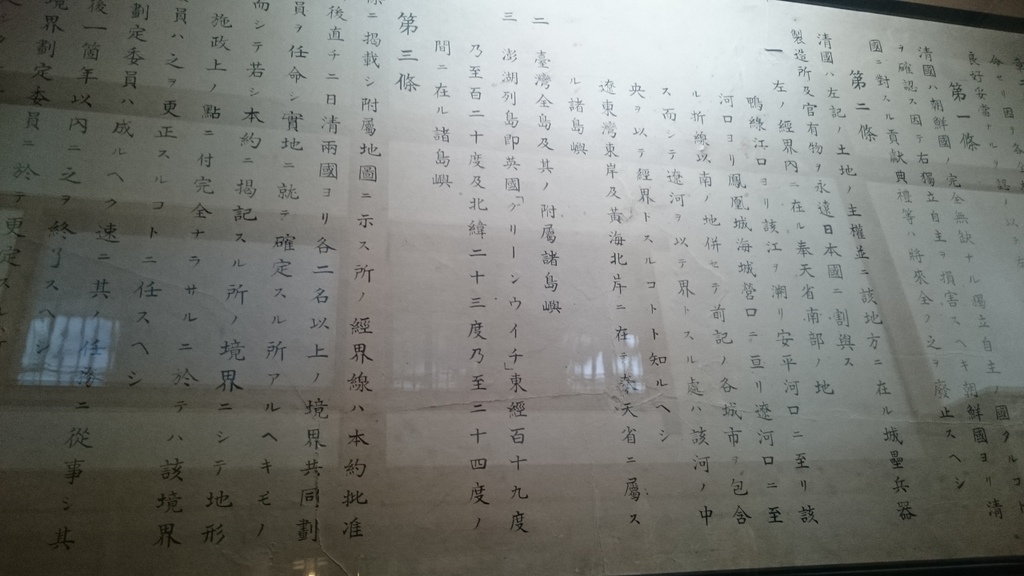 良好妥當ナル
第一條
清國ハ朝鮮國ノ完全無缺ナル獨立自主ノ國タルコト
ヲ確認ス因テ右獨立自主ヲ損害スヘキ朝鮮國ヨリ清
國ニ對スル貢獻典禮等ハ將來全ク之ヲ廢止スヘシ
第二條
清國ハ左記ノ土地ノ主權並ニ該地方ニ在ル城壘兵器
製造所及官有物ヲ永遠日本國ニ割與ス
一 左ノ經界內ニ在ル奉天省南部ノ地
鴨綠江口ヨリ該江ヲ溯リ安平河口ニ至リ該
河口ヨリ鳳凰城海城營口ニ亘リ遼河口ニ至
ル折線以南ノ地併セテ前記ノ各城市ヲ包含
ス而シテ遼河ヲ以テ界トスル處ハ該河ノ中
央ヲ以テ經界トスルコトト知ルヘシ
遼東灣東岸及黃海北岸ニ在テ奉天省ニ屬ス
ル諸島嶼
二 臺灣全島及其ノ附屬諸島嶼
三 澎湖列島卽英國「グリーンウイチ」東經百十九度
乃至百二十度及北緯二十三度乃至二十四度ノ
間ニ在ル諸島嶼
第三條
條ニ揭載シ附屬地圖ニ示ス所ノ經界線ハ本約批准
後直チニ日清兩國ヨリ各二名以上ノ境界共同劃
員ヲ任命シ實地ニ就テ確定スル所アルヘキモノ
而シテ若シ本約ニ揭記スル所ノ境界ニシテ地形
施政上ノ點ニ付完全ナラサルニ於テハ該境界
員ハ之ヲ更正スルコトニ任スヘシ
劃定委員ハ成ルヘク速ニ其ノ任務ニ從事シ其
後一箇年以內ニ之ヲ終了スヘシ
境界劃定委員ニ於テ更定スル